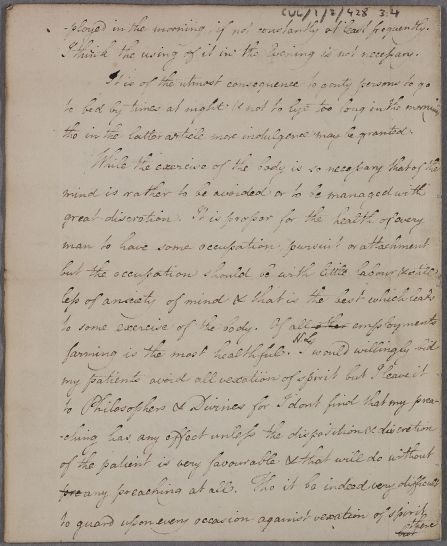 CUL/1/2/428 3.4
-ployed in the morning, if not constantly at least frequently.
I think the using of it in the Evening is not necessary.
It is of the utmost consequence to gouty persons to go
to bed by times at night & not to lye too long in the morning
tho in the latter article more indulgence may be granted.
While the exercise of the body is so necessary that of the
mind is rather to be avoided or to be managed with
great discretion. It is proper for the health of every
man to have some occupation, pursuit or attachment
but the occupation should be with little labour & still
less of anxiety of mind & that is the best which leads
to some exercise of the body. Of all other employments
farming is the most healthful. I would willingly bid
my patients avoid all vexation of spirit but I leave it
to Philosophers & Divines for I dont find that my prea-
-ching has any effect unless the disposition & discretion
of the patient is very favourable & that will do without
any preaching at all. Tho it be indeed very difficult
to guard upon every occasion against vexation of spirit